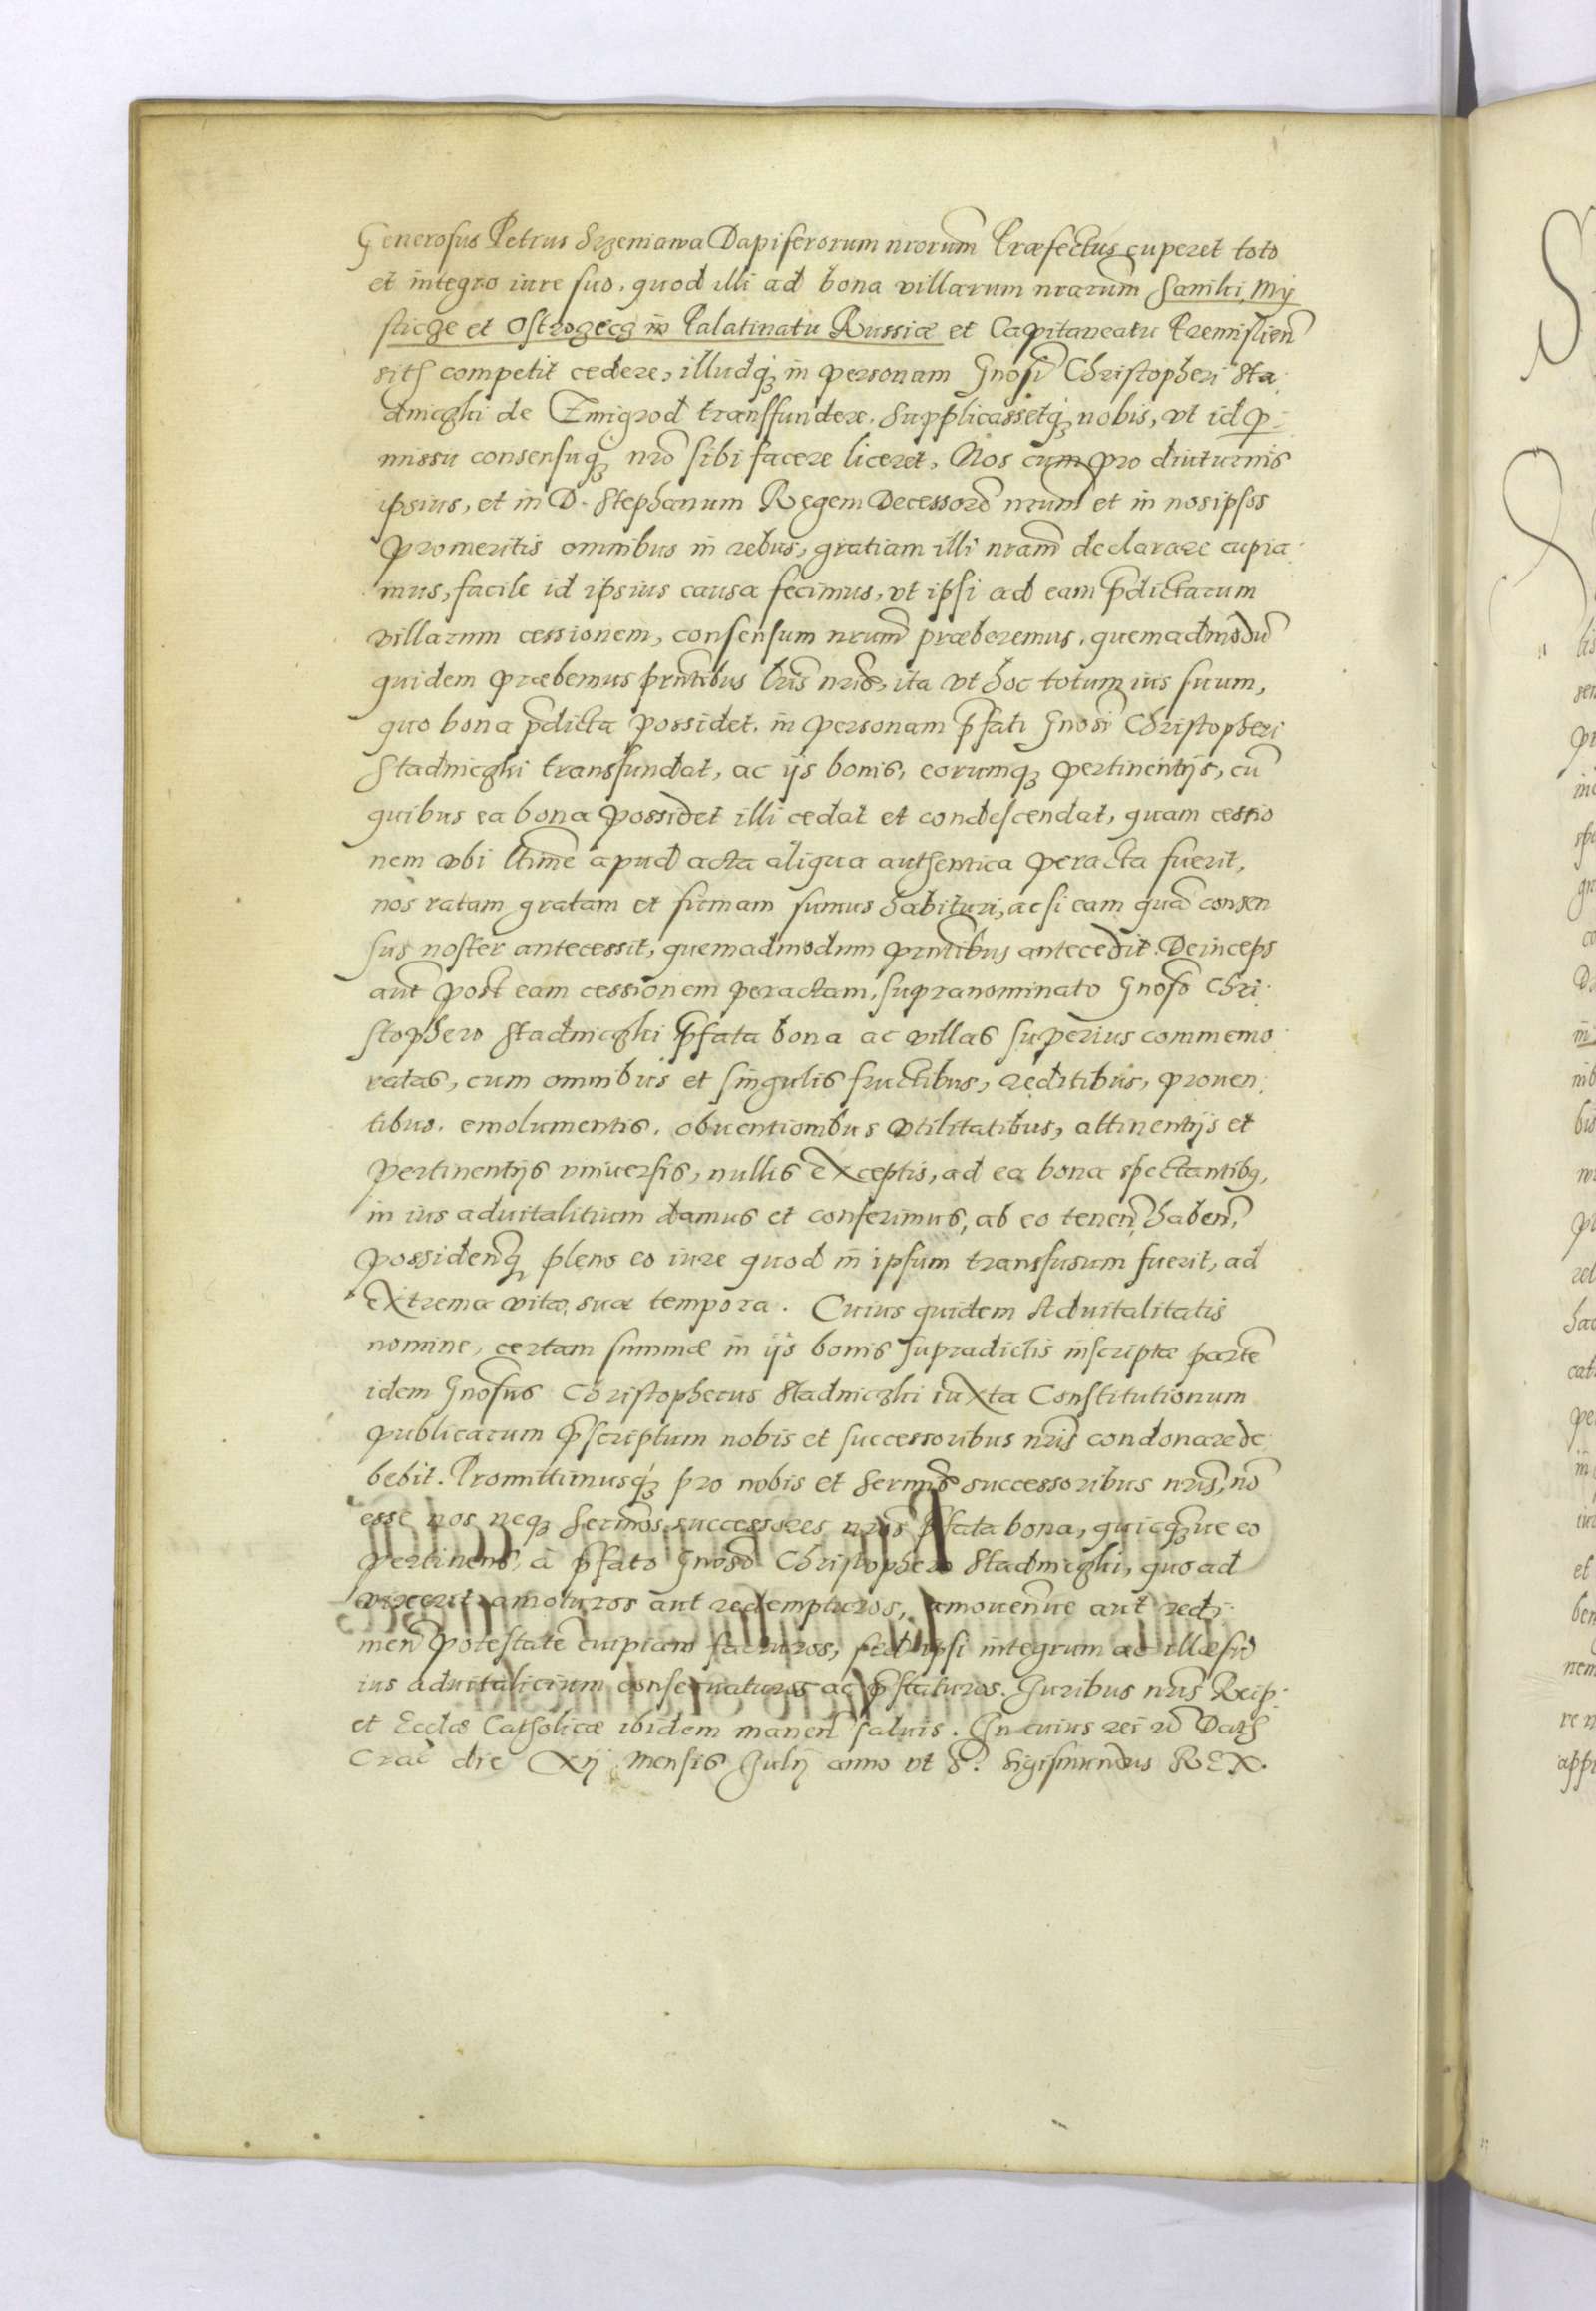 Generosus Petrus Srzeniawa Dapiferorum nrorum Præfectus cuperet toto
et integro iure suo, quod illi ad bona villarum nrarum Sanıki, My
sticze et Ostrozecz in Palatinatu Russiæ et Capitaneatu Premislien̄
sith competit cedere, illudq́ꝫ in personam Gnosi Christopheri Sta
dniczki de Zmigrod transfundere. Supplicassetq́ꝫ nobis, vt id ꝑ
missu consensuq́ꝫ nro sibi facere liceret, Nos cum pro diuturnis
ipsius, et in D. Stephanum Regem Decessorē nrum et in nos ipsos
promeritis omnibus in rebus, gratiam illi nram declarare cupia
mus, facile id ipsius causa fecimus, vt ipsi ad eam p̄dictarum
villarum cessionem, consensum nrum præberemus, quemadmodū
quidem præbemus pn̄tibus lr̄is nris, ita vt hoc totum ius suum,
quo bona p̄dicta possidet, in personam p̄fati Gnosi Christopheri
Stadniczki transfundat, ac ijs bonis, eorumqꝫ pertinentijs, cū
quibus ea bona possidet illi cedat et condescendat, quam cessio
nem vbi ltīme apud acta aliqua authentica peracta fuerit,
nos ratam gratam et firmam sumus habituri, ac si eam quā consen
sus noster antecessit, quemadmodum prn̄tibus antecedit. Deinceps
aut̄ post eam cessionem peractam, supranominato Gnoso Chri
stophero Stadniczki p̄fata bona ac villas superius commemo
ratas, cum omnibus et singulis fructibus, reditibus, prouen
tibus, emolumentis, obuentionibus vtilitatibus, attinentijs et
pertinentijs vniuersis, nullis exceptis, ad ea bona spectantibꝫ,
in ius aduitalitium damus et conferimus, ab eo tenen̄ haben̄,
possidenq́ꝫ pleno eo iure quod in ipsum transfusum fuerit, ad
extrema vitæ suæ tempora. Cuius quidem Aduitalitatis
nomine, certam summæ in ijs bonis supradictis inscriptæ partē
idem Gnosus Christopherus Stadniczki iuxta Constitutionum
publicarum p̄scriptum nobis et successoribus nris condonare de
bebit. Promittimusq́ꝫ pro nobis et Sermis successoribus nris, nō
esse nos neqꝫ Sermos successores nros p̄fata bona, quicqꝫue eo
pertinens, à p̄fato Gnoso Christophero Stadniczki, quo ad
vixerit amoturos aut redempturos, amouenn̄ue aut redi
men̄ potestatē cuipiam facturos, sed ipsi integrum ac illæsū
ius aduitalicium conseruaturos ac p̄staturos. Iuribus nris Reip
et Ecclæ Catholicæ ibidem manen̄ saluis. In cuius rei Dath
Crac̄ die Xij Mensis Julij anno vt S. Sigismundus REX.